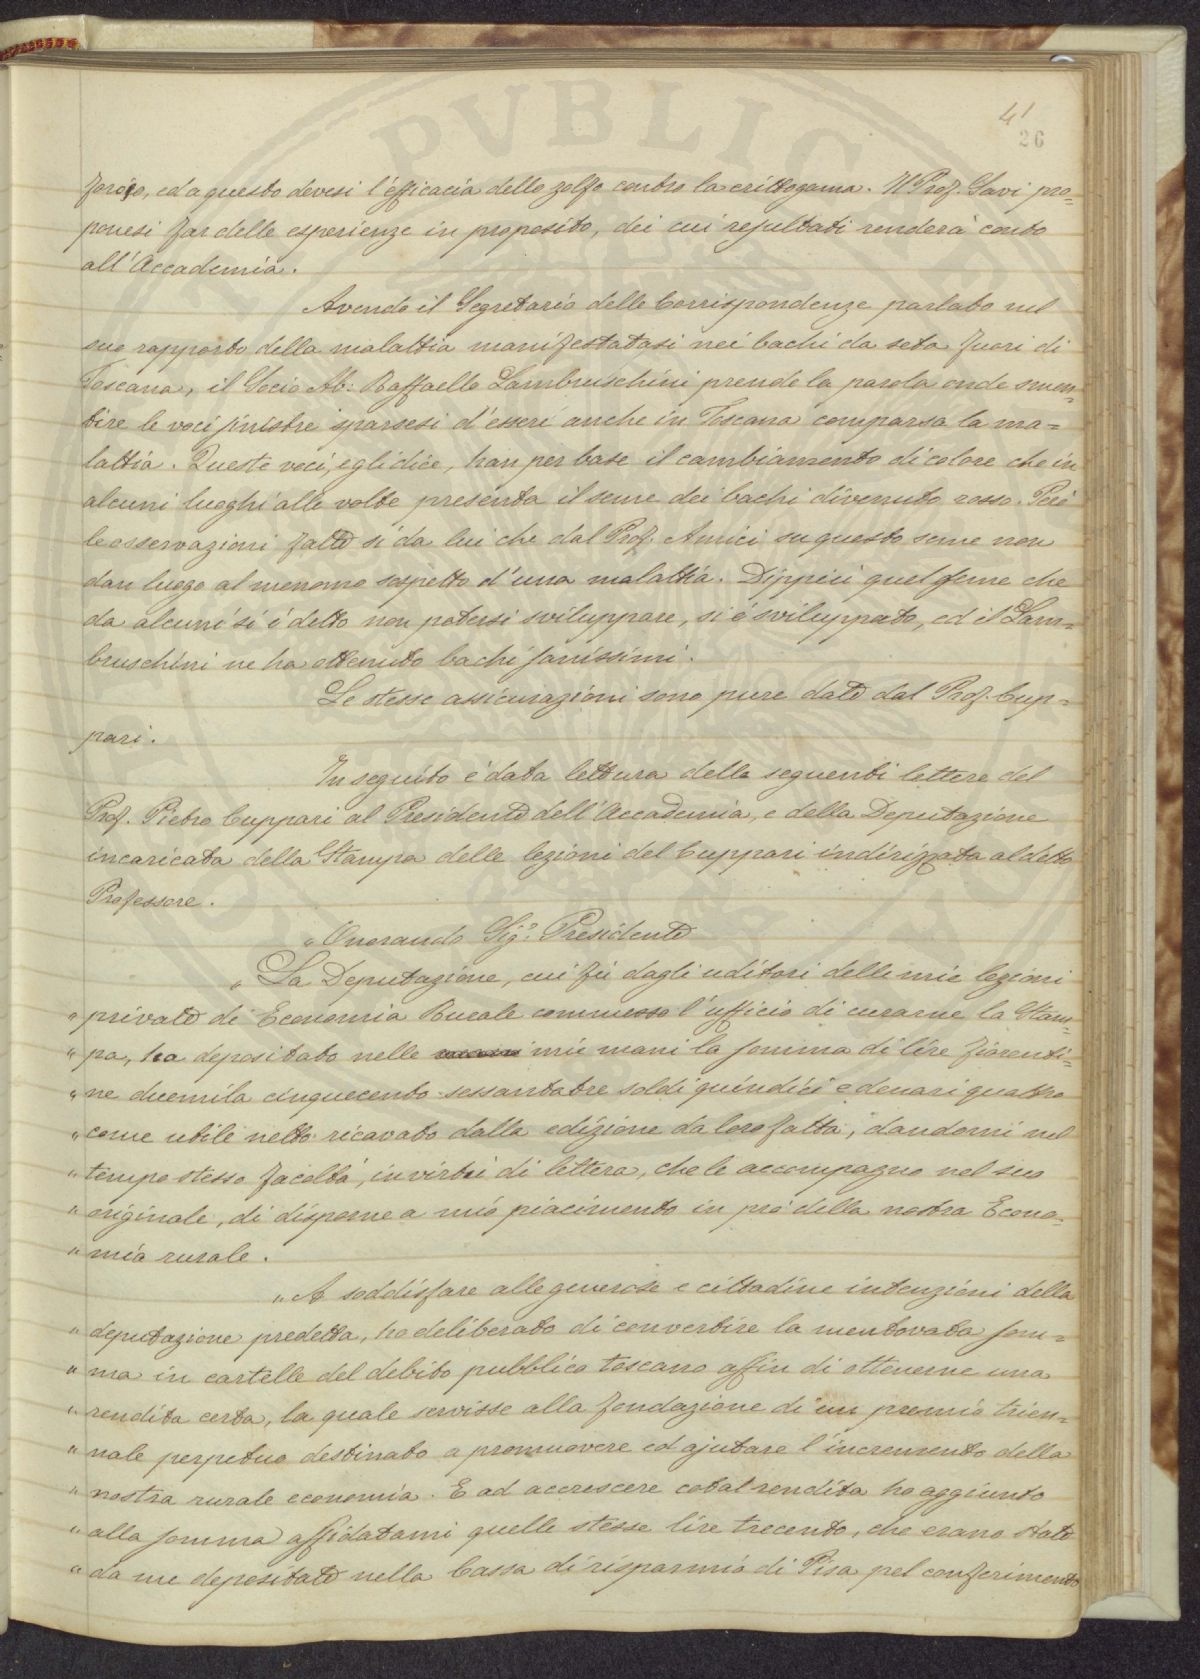 41
26
forico, ed a questo devesi l'efficacia dello zolfo contro la crittogama. Il Prof. Savi pro=
ponesi far delle esperienze in proposito, dei cui resultati renderà conto
all'Accademia.
Avendo il Segretario delle Corrispondenze parlato nel
suo rapporto della malattia manifestatasi nei bachi da seta fuori di
Toscana, il Socio Ab: Raffaello Lambruschini prende la parola onde smen=
tire le voci sinistre sparsesi d'esseri anche in Toscana comparsa la ma=
lattia. Queste voci, egli dice, han per base il cambiamento di colore che in
alcuni luoghi alle volte presenta il seme dei bachi divenuto rosso. Però
le osservazioni fatte sì da lui che dal Prof. Amici su questo seme non
dan luogo al menomo sospetto d'una malattia. Dippiù quel seme che
da alcuni si è detto non potersi sviluppare, si è sviluppato, ed il Lam=
bruschini ne ha ottenuto bachi sanissimi.
Le stesse assicurazioni sono pure date dal Prof. Cup=
pari.
In seguito è data lettura delle seguenti lettere del
Prof. Pietro Cuppari al Presidente dell'Accademia, e della Deputazione
incaricata della Stampa delle lezioni del Cuppari indirizzata al detto
Professore.
„ Onorando Sig.e Presidente
„ La Deputazione, cui fu dagli uditori delle mie lezioni
„ private di Economia Rurale commesso l'ufficio di curarne la Stam=
„ pa, ha depositato nelle mie mani la somma di lire fiorenti=
„ ne duemila cinquecento sessantatre soldi quindici e denari quattro
„ come utile netto ricavato dalla edizione da loro fatta, dandomi nel
„ tempo stesso facoltà, in virtù di lettera, che le accompagno nel suo
„ originale, di disporne a mio piacimento in prò della nostra Econo=
„ mia rurale.
„ A soddisfare alle generose e cittadine intenzioni della
„ deputazione predetta, ho deliberato di convertire la mentovata som=
„ ma in cartelle del debito pubblico toscano affin di ottenerne una
„ rendita certa, la quale servisse alla fondazione di un premio trien=
„ nale perpetuo destinato a promuovere ed ajutare l'incremento della
„ nostra rurale economia. E ad accrescere cotal rendita ho aggiunto
„ alla somma affidatami quelle stesse lire trecento, che erano state
„ da me depositate nella Cassa di risparmio di Pisa pel conferimento